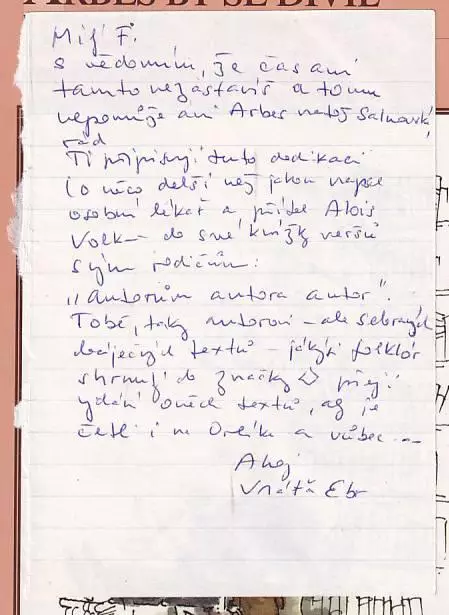 ARBES BY SE DIVIL
Milý F.
s vědomím, že čas ani
tamto nezastavíš a tomu
nepomůže ani Arbes natož
rád
Ti připisuji tuto dedikaci
(o něco delší než jakou napsal
osobní lékař a přítel Alois
Volk do své knížky veršů
svým rodičům:
"autorům autora autor".
Tobě, taky autorovi – ale sebraných
báječných textů – jakýsi folklór
shrnují do značky přeji
vydání oněch textů, ať je
četl i na Orlíku a vůbec ...
Ahoj
Vratia Ebr